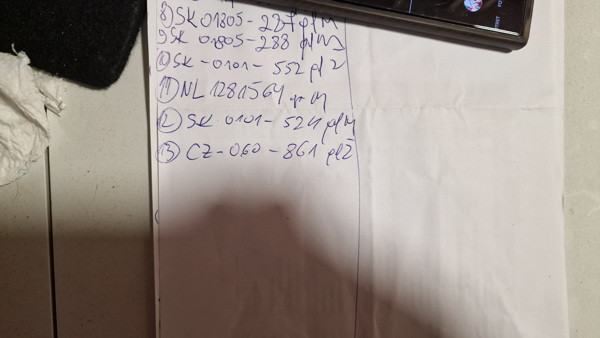 8) SK 01805-287 pl M
9) SK 01805-288 pl M
10) SK-0101-552 pl Ž
11) NL 1281564 pl M
12) SK 0101-524 pl M
13) CZ-060-861 pl Ž